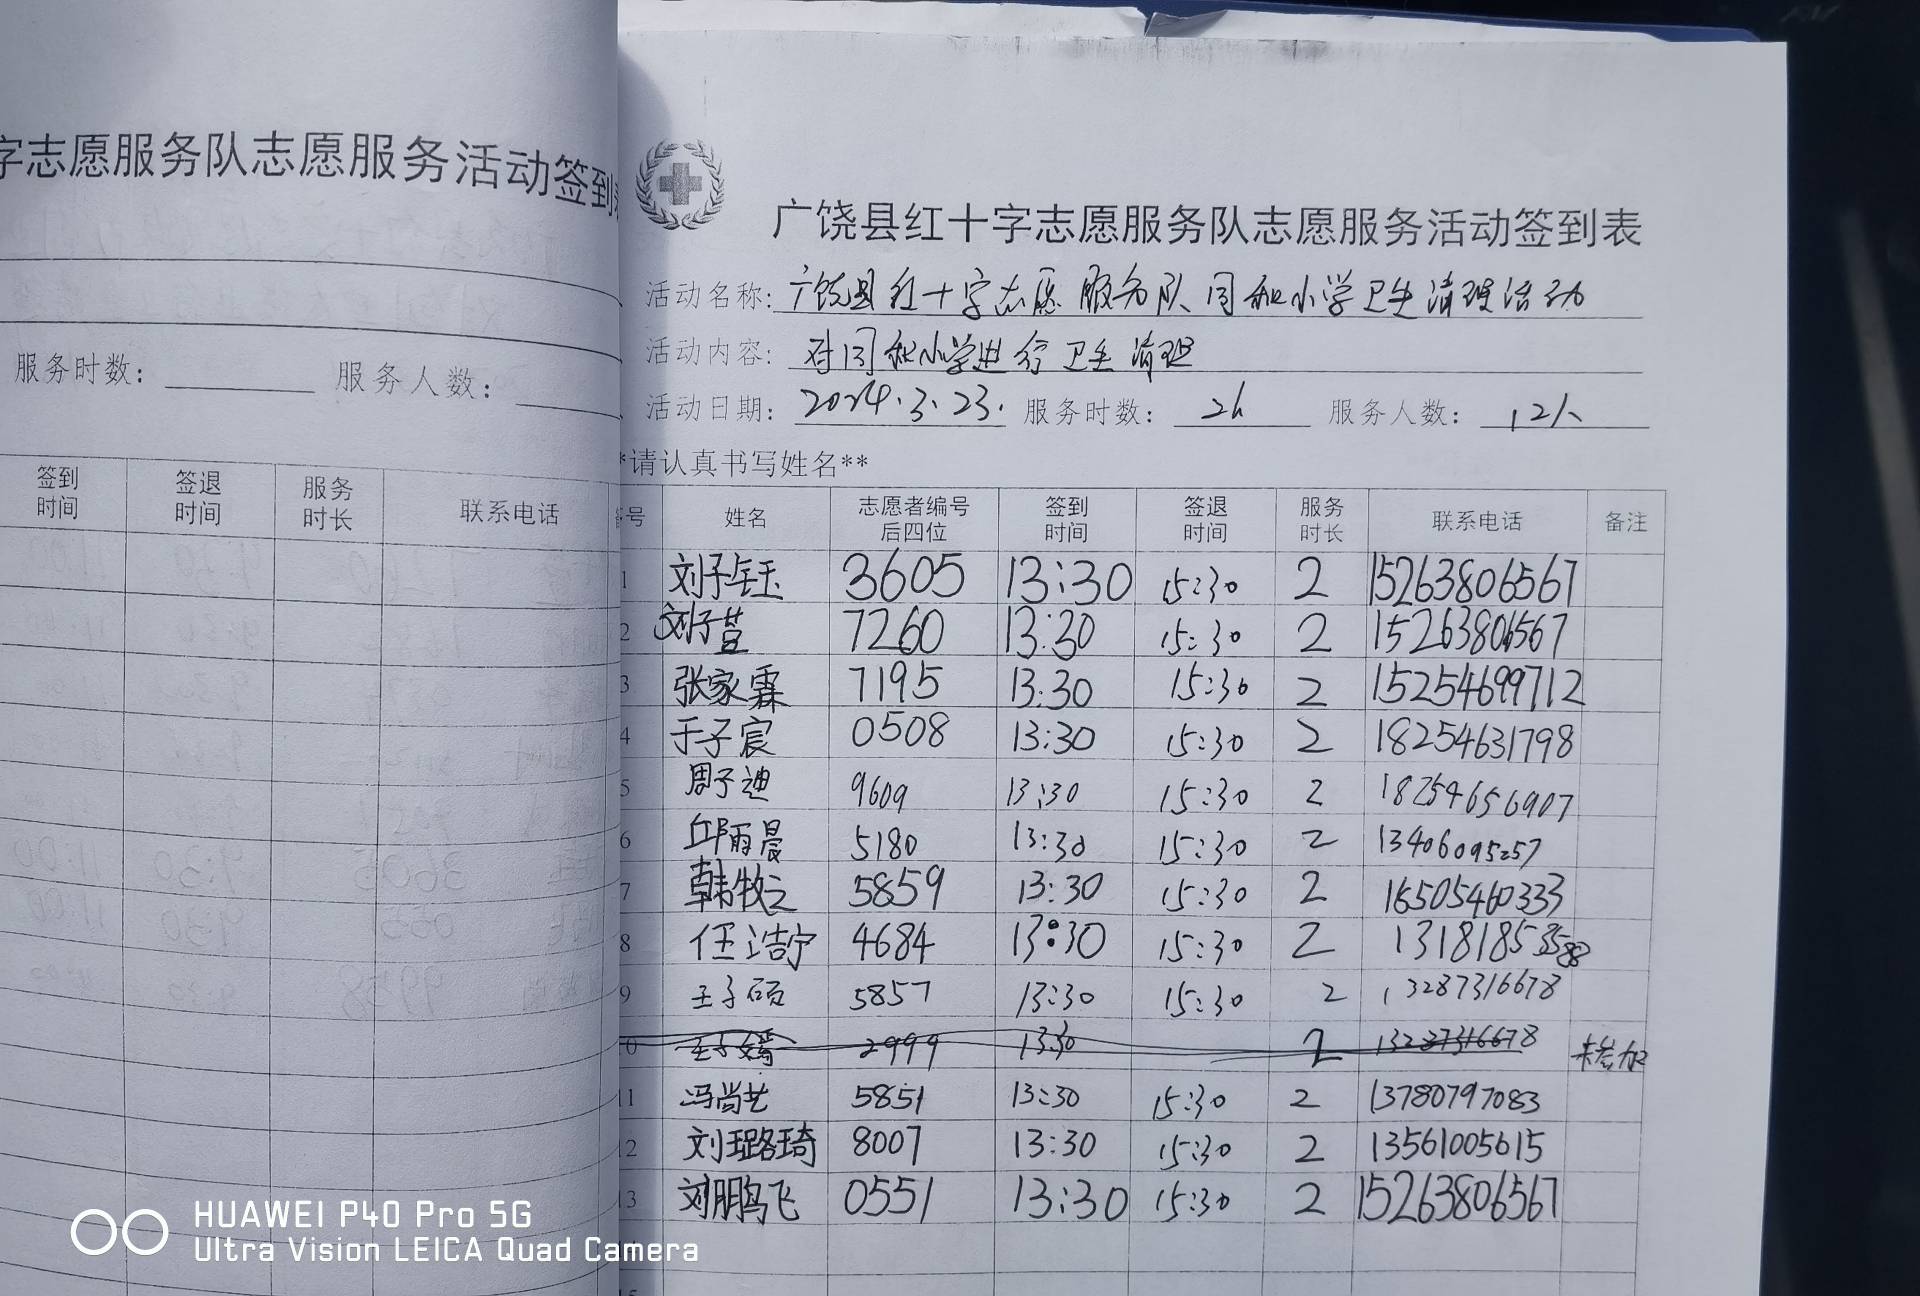 字志愿服务队志愿服务活动签到
服务时数： 服务人数：
签到时间 签退时间 服务时长 联系电话
广饶县红十字志愿服务队志愿服务活动签到表
活动名称: 广饶县红十字志愿服务队同和小学卫生清理活动
活动内容: 对同和小学进行卫生清理
活动日期: 2024.3.23. 服务时数: 2h 服务人数: 12人
*请认真书写姓名**
号 姓名 志愿者编号后四位 签到时间 签退时间 服务时长 联系电话 备注
1 刘子钰 3605 13:30 15:30 2 15263806567
2 刘子萱 7260 13:30 15:30 2 15263806567
3 张家霖 7195 13:30 15:30 2 15254699712
4 于子宸 0508 13:30 15:30 2 18254631798
5 周子迪 9609 13:30 15:30 2 18254656907
6 邱雨晨 5180 13:30 15:30 2 13406095257
7 韩牧之 5859 13:30 15:30 2 16505460333
8 任浩宁 4684 13:30 15:30 2 13181853588
9 王子硕 5857 13:30 15:30 2 13287316678
0 王子嫣 2999 13:30 2 13287316678 未参加
11 冯尚艺 5851 13:30 15:30 2 13780797083
12 刘璐琦 8007 13:30 15:30 2 13561005615
13 刘鹏飞 0551 13:30 15:30 2 15263806567
HUAWEI P40 Pro 5G
Ultra Vision LEICA Quad Camera